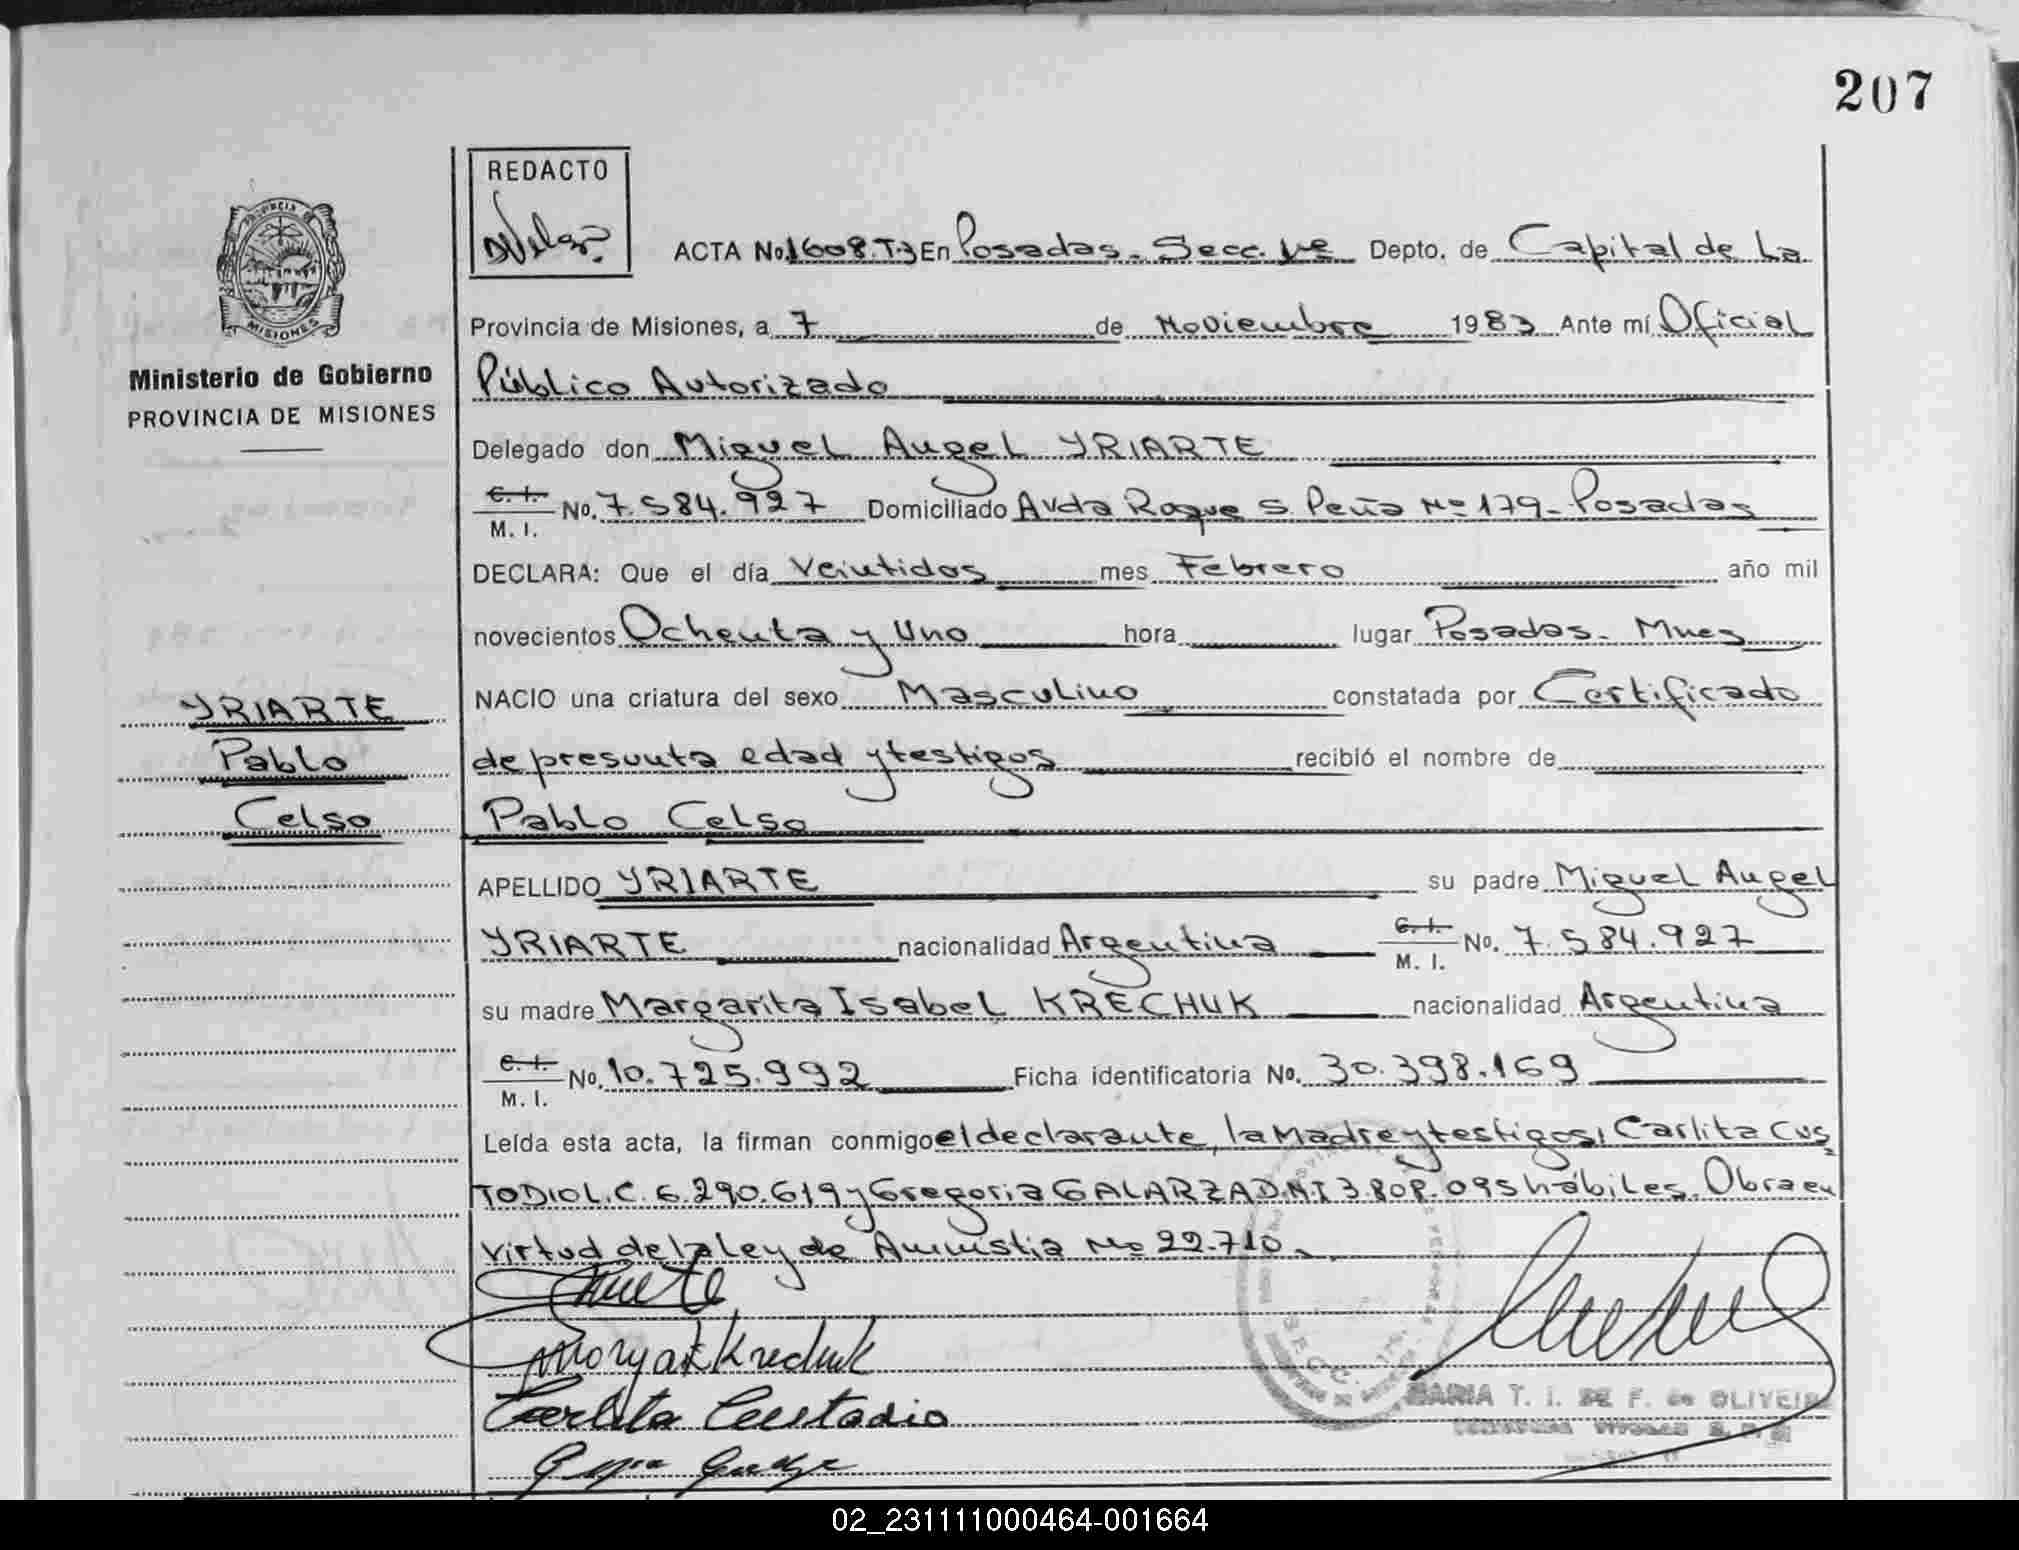 207
REDACTO
ACTA No. 1608. T.3 En Posadas. Secc. 1ª Depto. de Capital de La
Provincia de Misiones, a 7 de Noviembre 1983 Ante mí Oficial
Público Autorizado
Delegado don Miguel Angel YRIARTE
C. I. M. I. No. 7.584.927 Domiciliado Avda Roque S. Peña Nº 179- Posadas
DECLARA: Que el día Veintidos mes Febrero año mil
novecientos Ochenta y Uno hora lugar Posadas. Mnes
NACIO una criatura del sexo Masculino constatada por Certificado
de presunta edad y testigos recibió el nombre de
Pablo Celso
APELLIDO YRIARTE su padre Miguel Angel
YRIARTE nacionalidad Argentina C. I. M. I. No. 7.584.927
su madre Margarita Isabel KRECHUK nacionalidad Argentina
C. I. M. I. No. 10.725.992 Ficha identificatoria No. 30.398.169
Leída esta acta, la firman conmigo el declarante, la Madre y testigos, Carlita CUS
TODIO L.C. 6.290.619 y Gregoria GALARZA D.N.I 3.808.095 hábiles. Obra en
virtud de la Ley de Amnistia Nº 22.710.
Carlita Custodio
MARIA T. I. DE F. de OLIVEIRA
SECC. 1ra.
PROVINCIA DE
MISIONES
Ministerio de Gobierno
PROVINCIA DE MISIONES
YRIARTE
Pablo
Celso
02_231111000464-001664